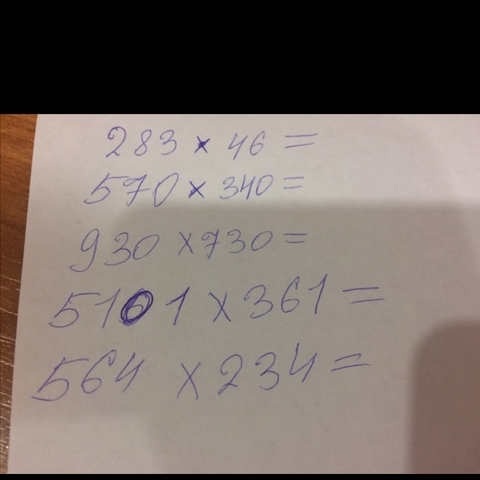 283 × 46 =
570 × 340 =
930 × 730 =
5101 × 361 =
564 × 234 =